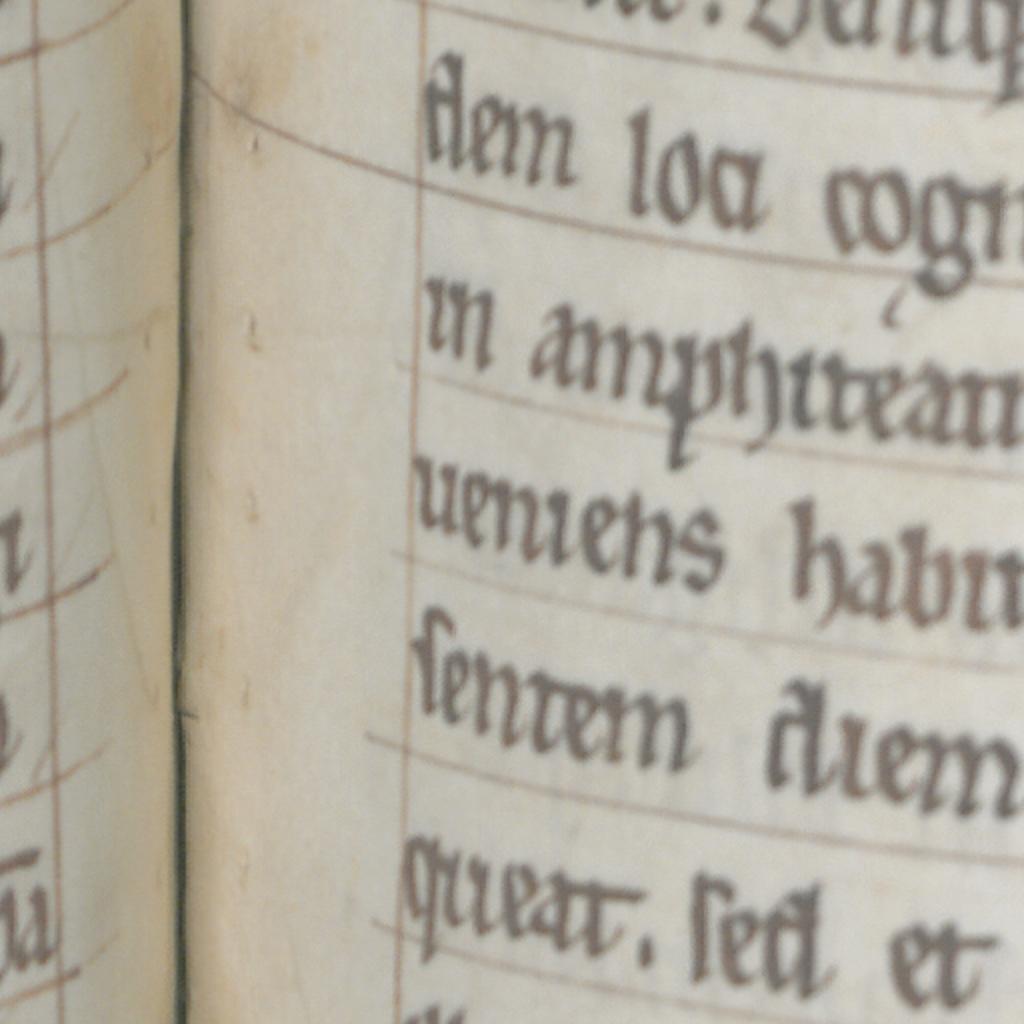 dem loca cogn
in amphiteatr
ueniens habit
sentem diem
queat. sed et